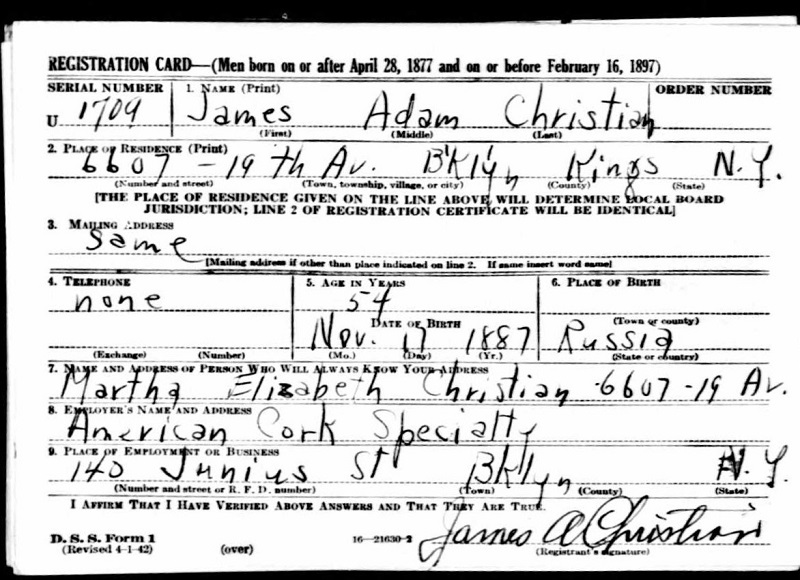 REGISTRATION CARD—(Men born on or after April 28, 1877 and on or before February 16, 1897)
SERIAL NUMBER 1. NAME (Print) ORDER NUMBER
U 1709 James Adam Christian
(First) (Middle) (Last)
2. PLACE OF RESIDENCE (Print)
6607 - 19th Av. B'klyn Kings N.Y.
(Number and street) (Town, township, village, or city) (County) (State)
[THE PLACE OF RESIDENCE GIVEN ON THE LINE ABOVE WILL DETERMINE LOCAL BOARD
JURISDICTION; LINE 2 OF REGISTRATION CERTIFICATE WILL BE IDENTICAL]
3. MAILING ADDRESS
Same
[Mailing address if other than place indicated on line 2. If same insert word same]
4. TELEPHONE 5. AGE IN YEARS 6. PLACE OF BIRTH
none 54
DATE OF BIRTH (Town or county)
Nov. 17 1887 Russia
(Exchange) (Number) (Mo.) (Day) (Yr.) (State or country)
7. NAME AND ADDRESS OF PERSON WHO WILL ALWAYS KNOW YOUR ADDRESS
Martha Elizabeth Christian -6607-19 Av.
8. EMPLOYER'S NAME AND ADDRESS
American Cork Specialty
9. PLACE OF EMPLOYMENT OR BUSINESS
140 Junius St Bklyn N.Y.
(Number and street or R. F. D. number) (Town) (County) (State)
I AFFIRM THAT I HAVE VERIFIED ABOVE ANSWERS AND THAT THEY ARE TRUE.
James A Christian
D. S. S. Form 1 16—21630-2
(Revised 4-1-42) (over) (Registrant's signature)